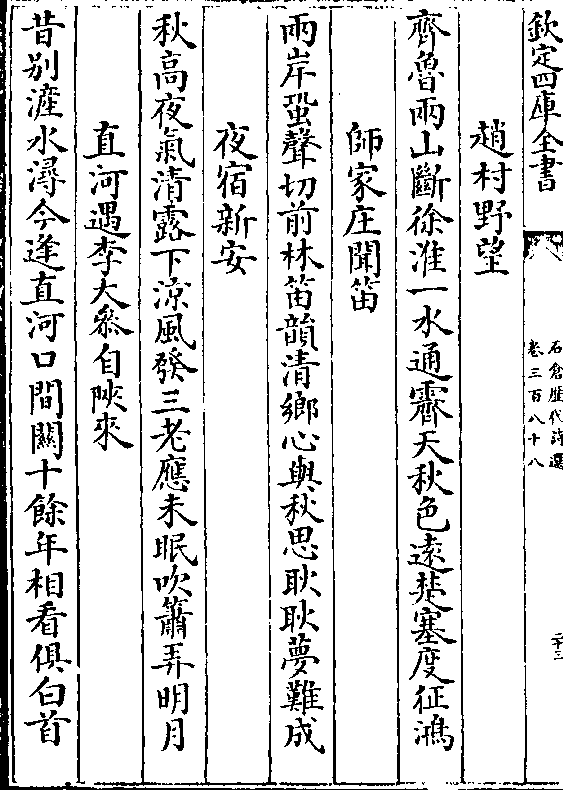 欽定四庫全書
石倉歷代詩選
卷三百八十八
二十三
趙村野望
齊魯兩山斷徐淮一水通霽天秋色遠楚塞度征鴻
師家庄聞笛
兩岸蛩聲切前林笛韻清鄉心與秋思耿耿夢難成
夜宿新安
秋高夜氣清露下涼風發三老應未眠吹簫弄明月
直河遇李大叅自陜來
昔別滻水潯今逢直河口間關十餘年相看俱白首